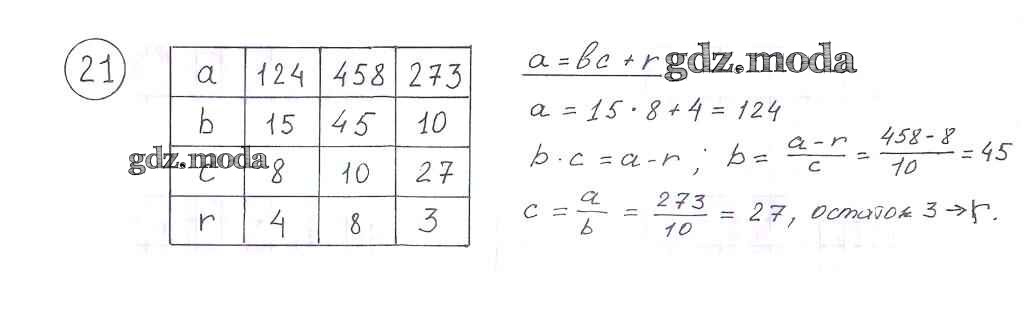 21
a 124 458 273
b 15 45 10
c 8 10 27
r 4 8 3
gdz.moda
a = bc + r gdz.moda
a = 15 · 8 + 4 = 124
b · c = a - r ; b = (a - r)/c = (458 - 8)/10 = 45
c = a/b = 273/10 = 27, остаток 3 → r.